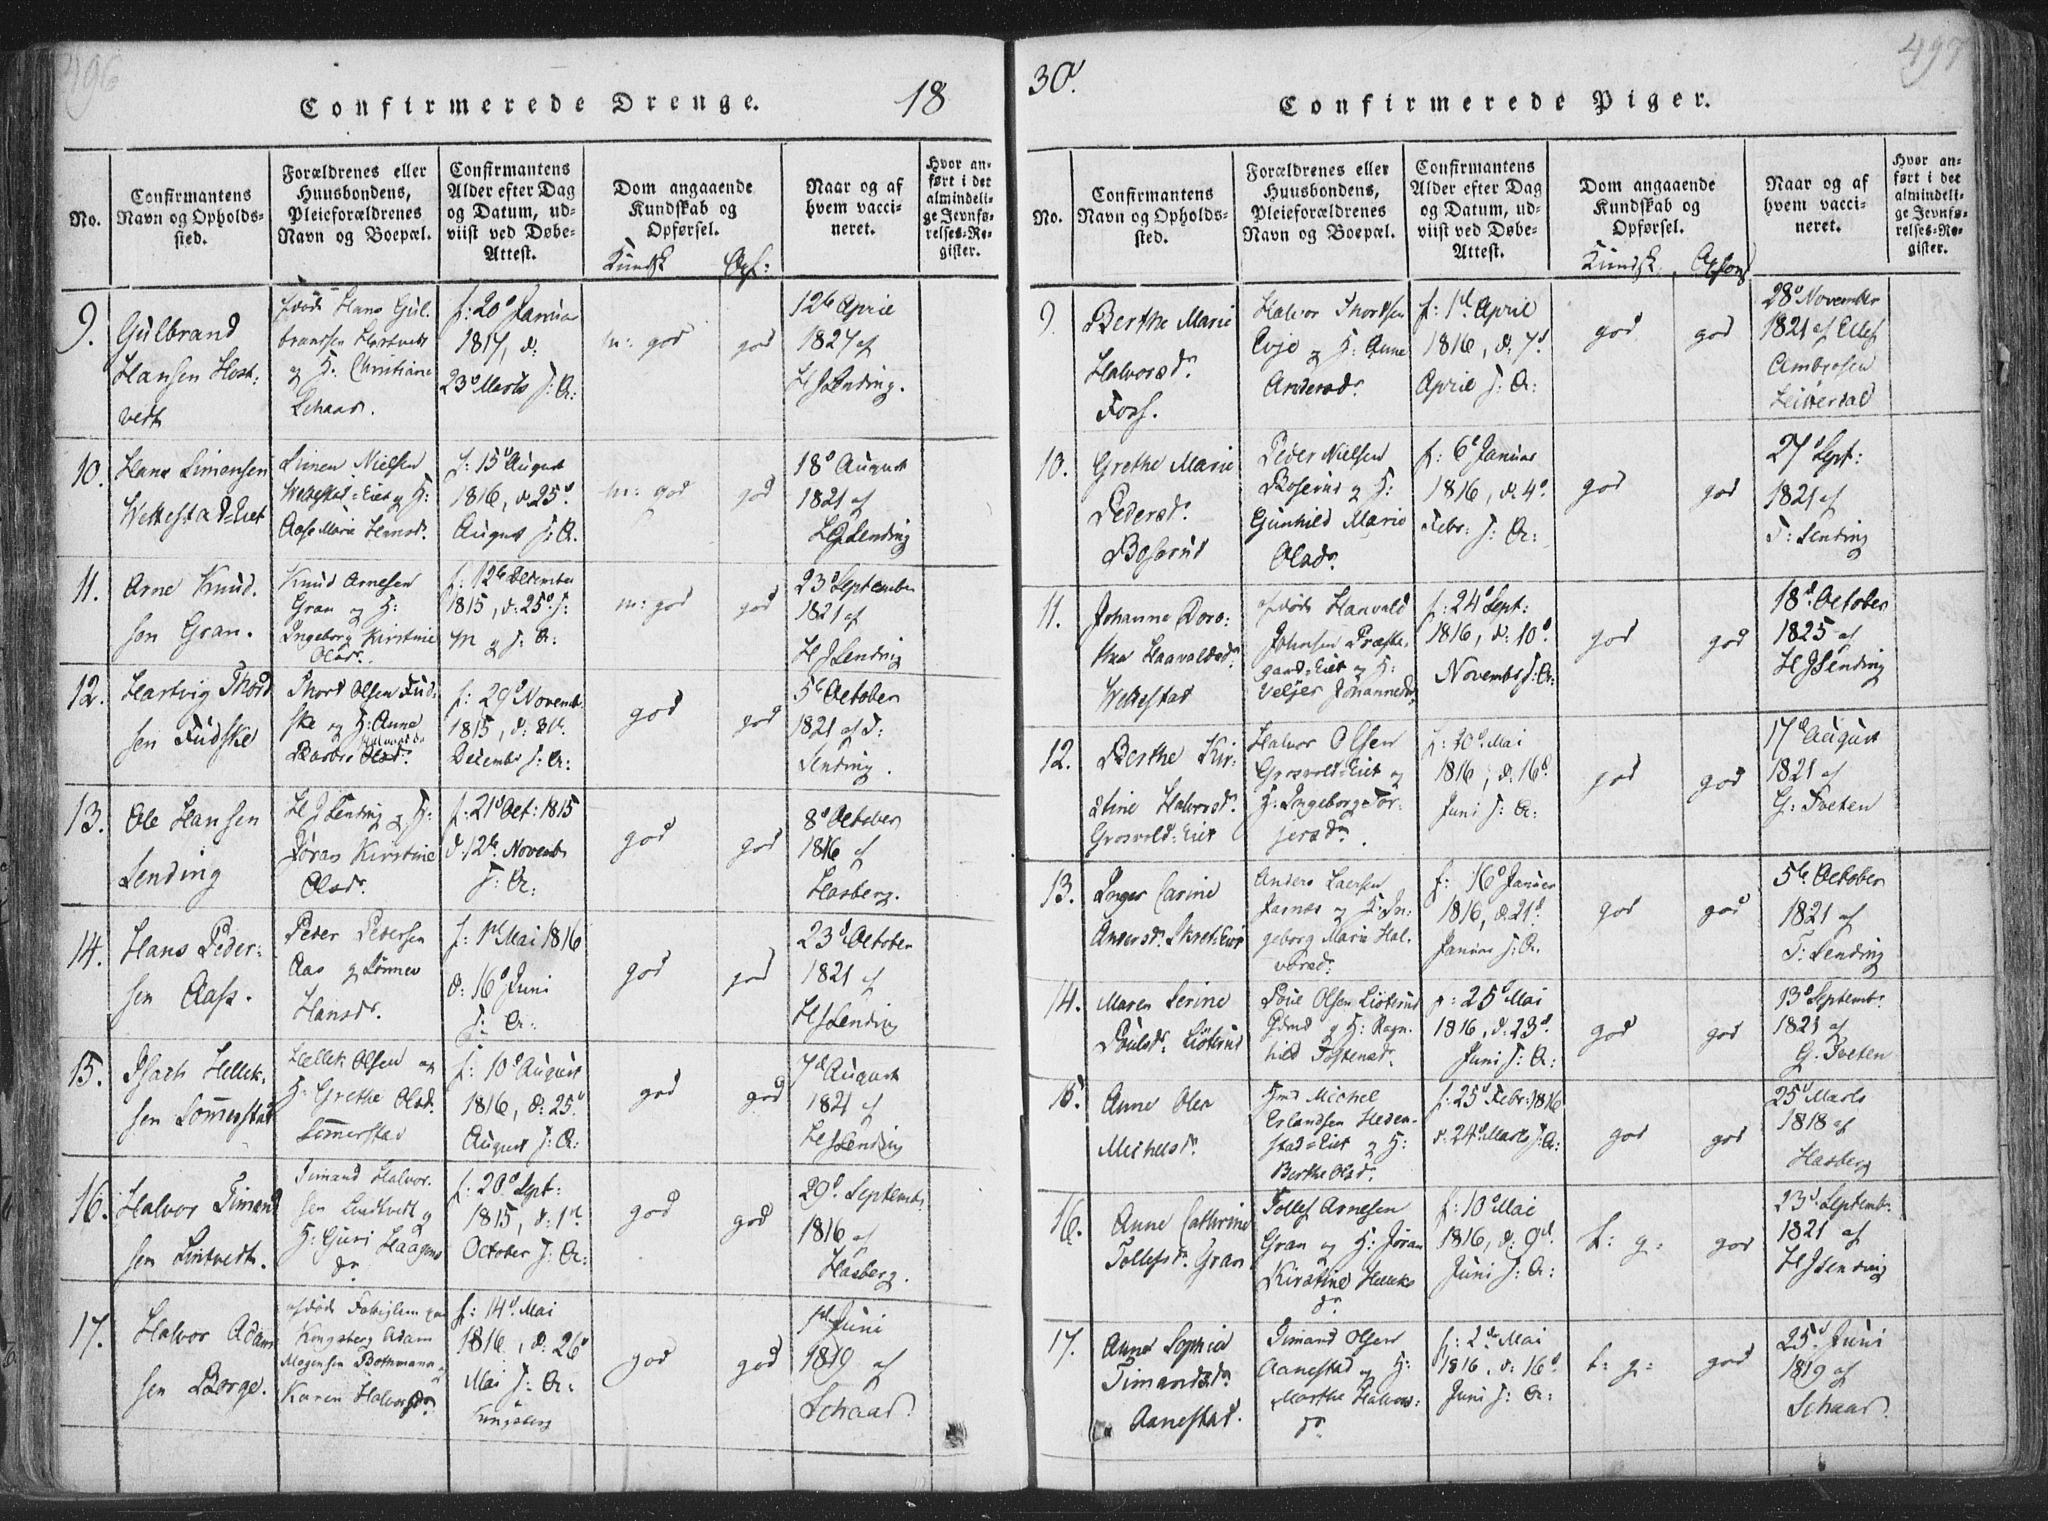 496
Confirmerede Drenge.
18
No.
Confirmantens
Navn og Opholds-
sted.
Forældrenes eller
Huusbondens,
Pleieforældrenes
Navn og Boepæl.
Confirmantens
Alder efter Dag
og Datum, ud-
viist ved Døbe-
Attest.
Dom angaaende
Kundskab og
Opførsel.
Kundsk Opf:
Naar og af
hvem vacci-
neret.
Hvor an-
ført i det
almindeli-
ge Jevnfø-
relses-Re-
gister.
9.
Gulbrand
Hansen Host-
vedt
Hans Gul-
brandsen Hostvedt
og H. Christiane
Schaar.
f: 20d Januar
1817, d:
23d Marts J: A:
m: god
god
12te April
1827 af
H J Sending.
10.
Hans Simensen
Wettestad-Eiet
Simen Nielsen
Wettestad-Eiet og H:
Aase Marie
f: 15d August
1816, d: 25d
August J: A.
m: god
god
18d August
1821 af
H J Sending
11.
Arne Knud-
sen Gran.
Knud Arnesen
Gran og H:
Ingeborg Kirstine
Olsdr.
f: 12te December
1815, d: 25d J:
M og J: A:
m: god
god
23d September
1821 af
H J Sending
12.
Hartvig Thord
sen Fudske
Thord Olsen Fud-
ske og H: Anne
Barbro Olsdr.
f: 29d Novemb:
1815, d:
Decembr J: A:
god
god
5te October
1821 af T:
Sending.
13.
Ole Hansen
Sending
H J Sending og H:
Jøran Kirstine
Olsdr.
f: 21d Oct: 1815
d. 12te Novembr
J: A:
god
god
8d October
1816 af
Hasberg.
14.
Hans Peder-
sen Aass.
Peder Pedersen
Aas og Sønnev
Hansdr.
f: 1ste Mai 1816
d: 16d Juni
J: A:
god
god
23d October
1821 af
H J Sending
15.
Isach Hellek-
sen Sommerstad
Hellek Olsen og
H: Grethe Olsd.
Sommerstad
f: 10d August
1816, d: 25d
August J: A:
god
god
7de August
1821 af
H J Sending
16.
Halvor Timand
sen Lintvedt.
Timand Halvor-
sen Lindtvedt og
H: Guri Haagens
dr.
f: 20d Sept:
1815, d: 1ste
October J: A:
god
god
29d. Septemb:
1816 af
Hasberg.
17.
Halvor Adam
sen Borge.
paa
Kongsberg Adam
Mogensen Bothmann og
Karen Halvorsdr.
f: 14d Mai
1816, d: 26d
Mai J: A:
Kongsberg
god
god
1ste Juni
1819 af
Schaar.
30d.
497
Confirmerede Piger.
No.
Confirmantens
Navn og Opholds-
sted.
Forældrenes eller
Huusbondens,
Pleieforældrenes
Navn og Boepæl.
Confirmantens
Alder efter Dag
og Datum, ud-
viist ved Døbe-
Attest.
Dom angaaende
Kundskab og
Opførsel.
Kundsk.
Naar og af
hvem vacci-
neret.
Hvor an-
ført i det
almindeli-
ge Jevnfø-
relses-Re-
gister.
9.
Berthe Marie
Halvorsdr.
Foss.
Halvor Thordsen
Evje og H: Anne
Andersdr.
f: 1ste April
1816, d. 7d
April J: A:
god
god
28d November
1821 af Ellef
Ambrosen
10.
Grethe Marie
Pedersdr.
Boserud
Peder Nielsen
Boserud og H:
Gunhild Marie
Olsdr.
f: 6d Januar
1816, d: 4d.
Febr: J: A:
god
god
27d Sept:
1821 af
T: Sending
11.
Johanne Doro-
thea Haavaldsdr.
Wettestad
afdøde Haavald
Johnsen Præste-
gaard-Eiet og H:
Johannesdr
f: 24d Sept:
1816, d: 10d
Novembr J: A:
god
god
18d October
1825 af
H J Sending
12.
Berthe Kir-
stine Halvorsd.
Grosvold-Eiet
Halvor Olsen
Grosvold-Eiet og
H: Ingeborg Tor-
jersdr.
f: 30d Mai
1816, d: 16d.
Juni J: A:
god
god
17d August
1821 af
G: Tveten
13.
Inger Carine
Andersdr. Skret-Eiet
Anders Larsen
Jarnæs og H: In-
geborg Marie Hal-
vorsd.
f: 16d Januar
1816, d: 21d
Januar J: A.
god
god
5te October
1821 af
T: Sending
14.
Maren Serine
Poulsdr. Lioterud
Poul Olsen Lioterud
og H: Ragn-
hild Tostensdr.
f: 25d Mai
1816, d: 23d.
Juni J: A:
god
god
13d Septembr.
1821 af
G. Tveten
15.
Anne Olea
Michelsdr.
Michel
Erlandsen Heden-
stad-Eiet og H:
Berthe Olsdr.
f: 25d Febr: 1816
d: 24d Marts J: A:
god
god
25d Marts
1818 af
Hasberg
16.
Anne Cathrine
Tollefsdr. Gran
Tollef Arnesen
Gran og H: Jøran
Kirstine Helleks
dr.
f: 10d Mai
1816, d: 9d
Juni J: A:
t: g:
god
23d Septembr.
1821 af
H J Sending
17.
Anne Sophia
Timandsdr.
Aanestad.
Timand Olsen
Aanestad og H:
Marthe Halvors-
dr.
f: 2den Mai
1816. d: 16d.
Juni J: A:
t: g:
god
25d Juni
1819 af
Schaar.